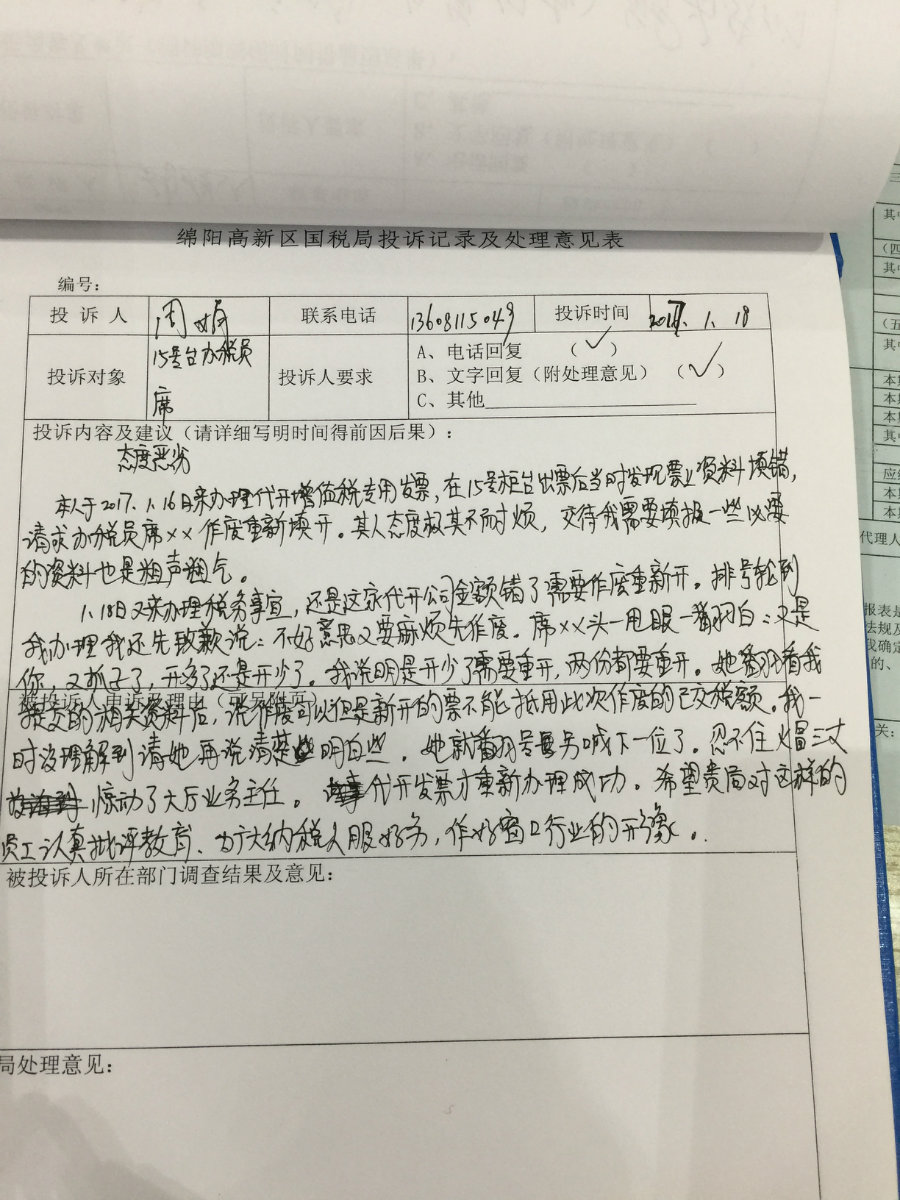 绵阳高新区国税局投诉记录及处理意见表
编号:
投诉人 周 联系电话 13608115049 投诉时间 2017.1.18
投诉对象 15号台办税员 席 投诉人要求
A、电话回复 (√)
B、文字回复(附处理意见) (√)
C、其他
投诉内容及建议(请详细写明时间得前因后果):
态度恶劣
本人于2017.1.16日来办理代开增值税专用发票,在15号柜台出票后当时发现票业资料填错,
请求办税员席××作废重新填开。其人态度极其不耐烦,交待我需要填报一些必要
的资料也是粗声粗气。
1.18日又来办理税务事宜,还是这家代开公司金额错了需要作废重新开。排号轮到
我办理我还先致歉说:不好意思又要麻烦先作废。席××头一甩眼一翻白:又是
你,又抓子了,开多了还是开少了。我说明是开少了需要重开,两份都要重开。她翻看我
被投诉人申诉及理由(可另附页)
提交的相关资料后,说作废可以但是新开的票不能抵用此次作废的已交税额。我一
时没理解到请她再说清楚些明白些。她就翻号另喊下一位了。忍不住火冒三丈
惊动了大厅业务主任。代开发票才重新办理成功。希望贵局对这样的
员工认真批评教育、为广大纳税人服好务,作好窗口行业的形象。
被投诉人所在部门调查结果及意见:
局处理意见:
其中
(四
其中
(五
其中
本期
本期
本期
其中
应纳
本期
本期
代理人
报表是
法规及
我确定
的、
关: